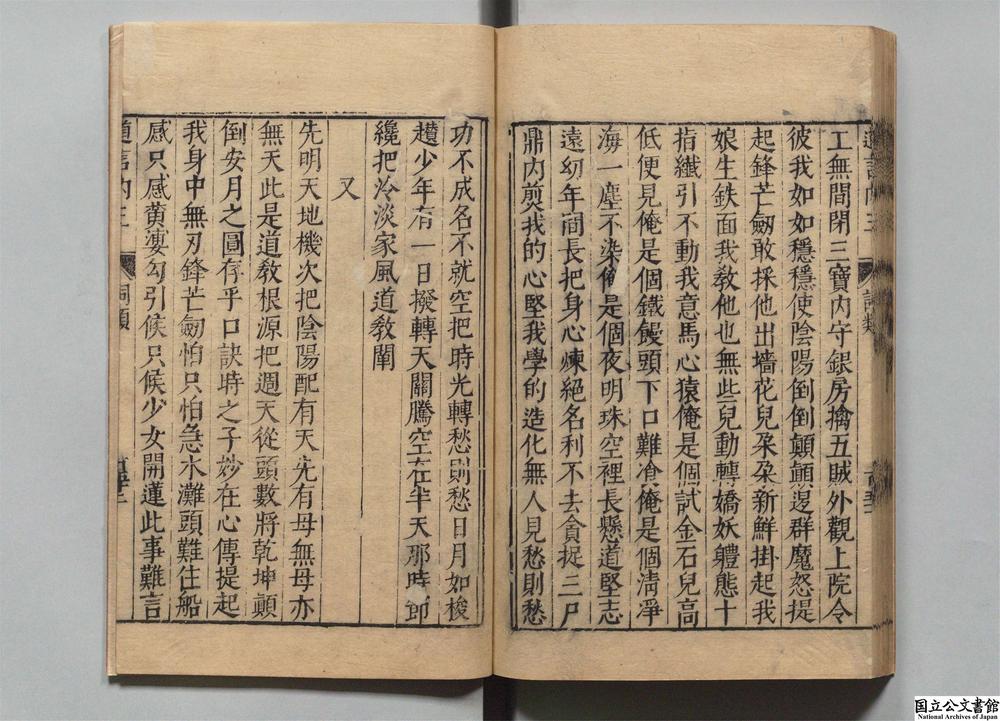 工無間閉三寶內守銀房擒五賊外觀上院令
彼我如如穩穩使陰陽倒倒顛顛邊群魔怒提
起鋒芒劒敢採他出墻花兒朶朶新鮮掛起我
娘生鉄面我敎他也無些兒動轉嬌妖軆態十
指纖引不動我意馬心猿俺是個試金石兒高
低便見俺是個鐵饅頭下口難飡俺是個清凈
海一塵不染俺是個夜明珠空裡長懸道堅志
遠幼年間長把身心煉絕名利不去貪捉三尸
鼎內煎我的心堅我學的造化無人見愁則愁
功不成名不就空把時光轉愁則愁日月如梭
趲少年有一日撥轉天關騰空在半天那時節
纔把冷淡家風道敎闡
又
先明天地機次把陰陽配有天先有母無母亦
無天此是道敎根源把週天從頭數將乾坤顛
倒安月之圖存乎口訣時之子妙在心傳提起
我身中無刃鋒芒劒怕只怕急水灘頭難住船
感只感黄婆勾引候只候少女開蓮此事難言
詞類